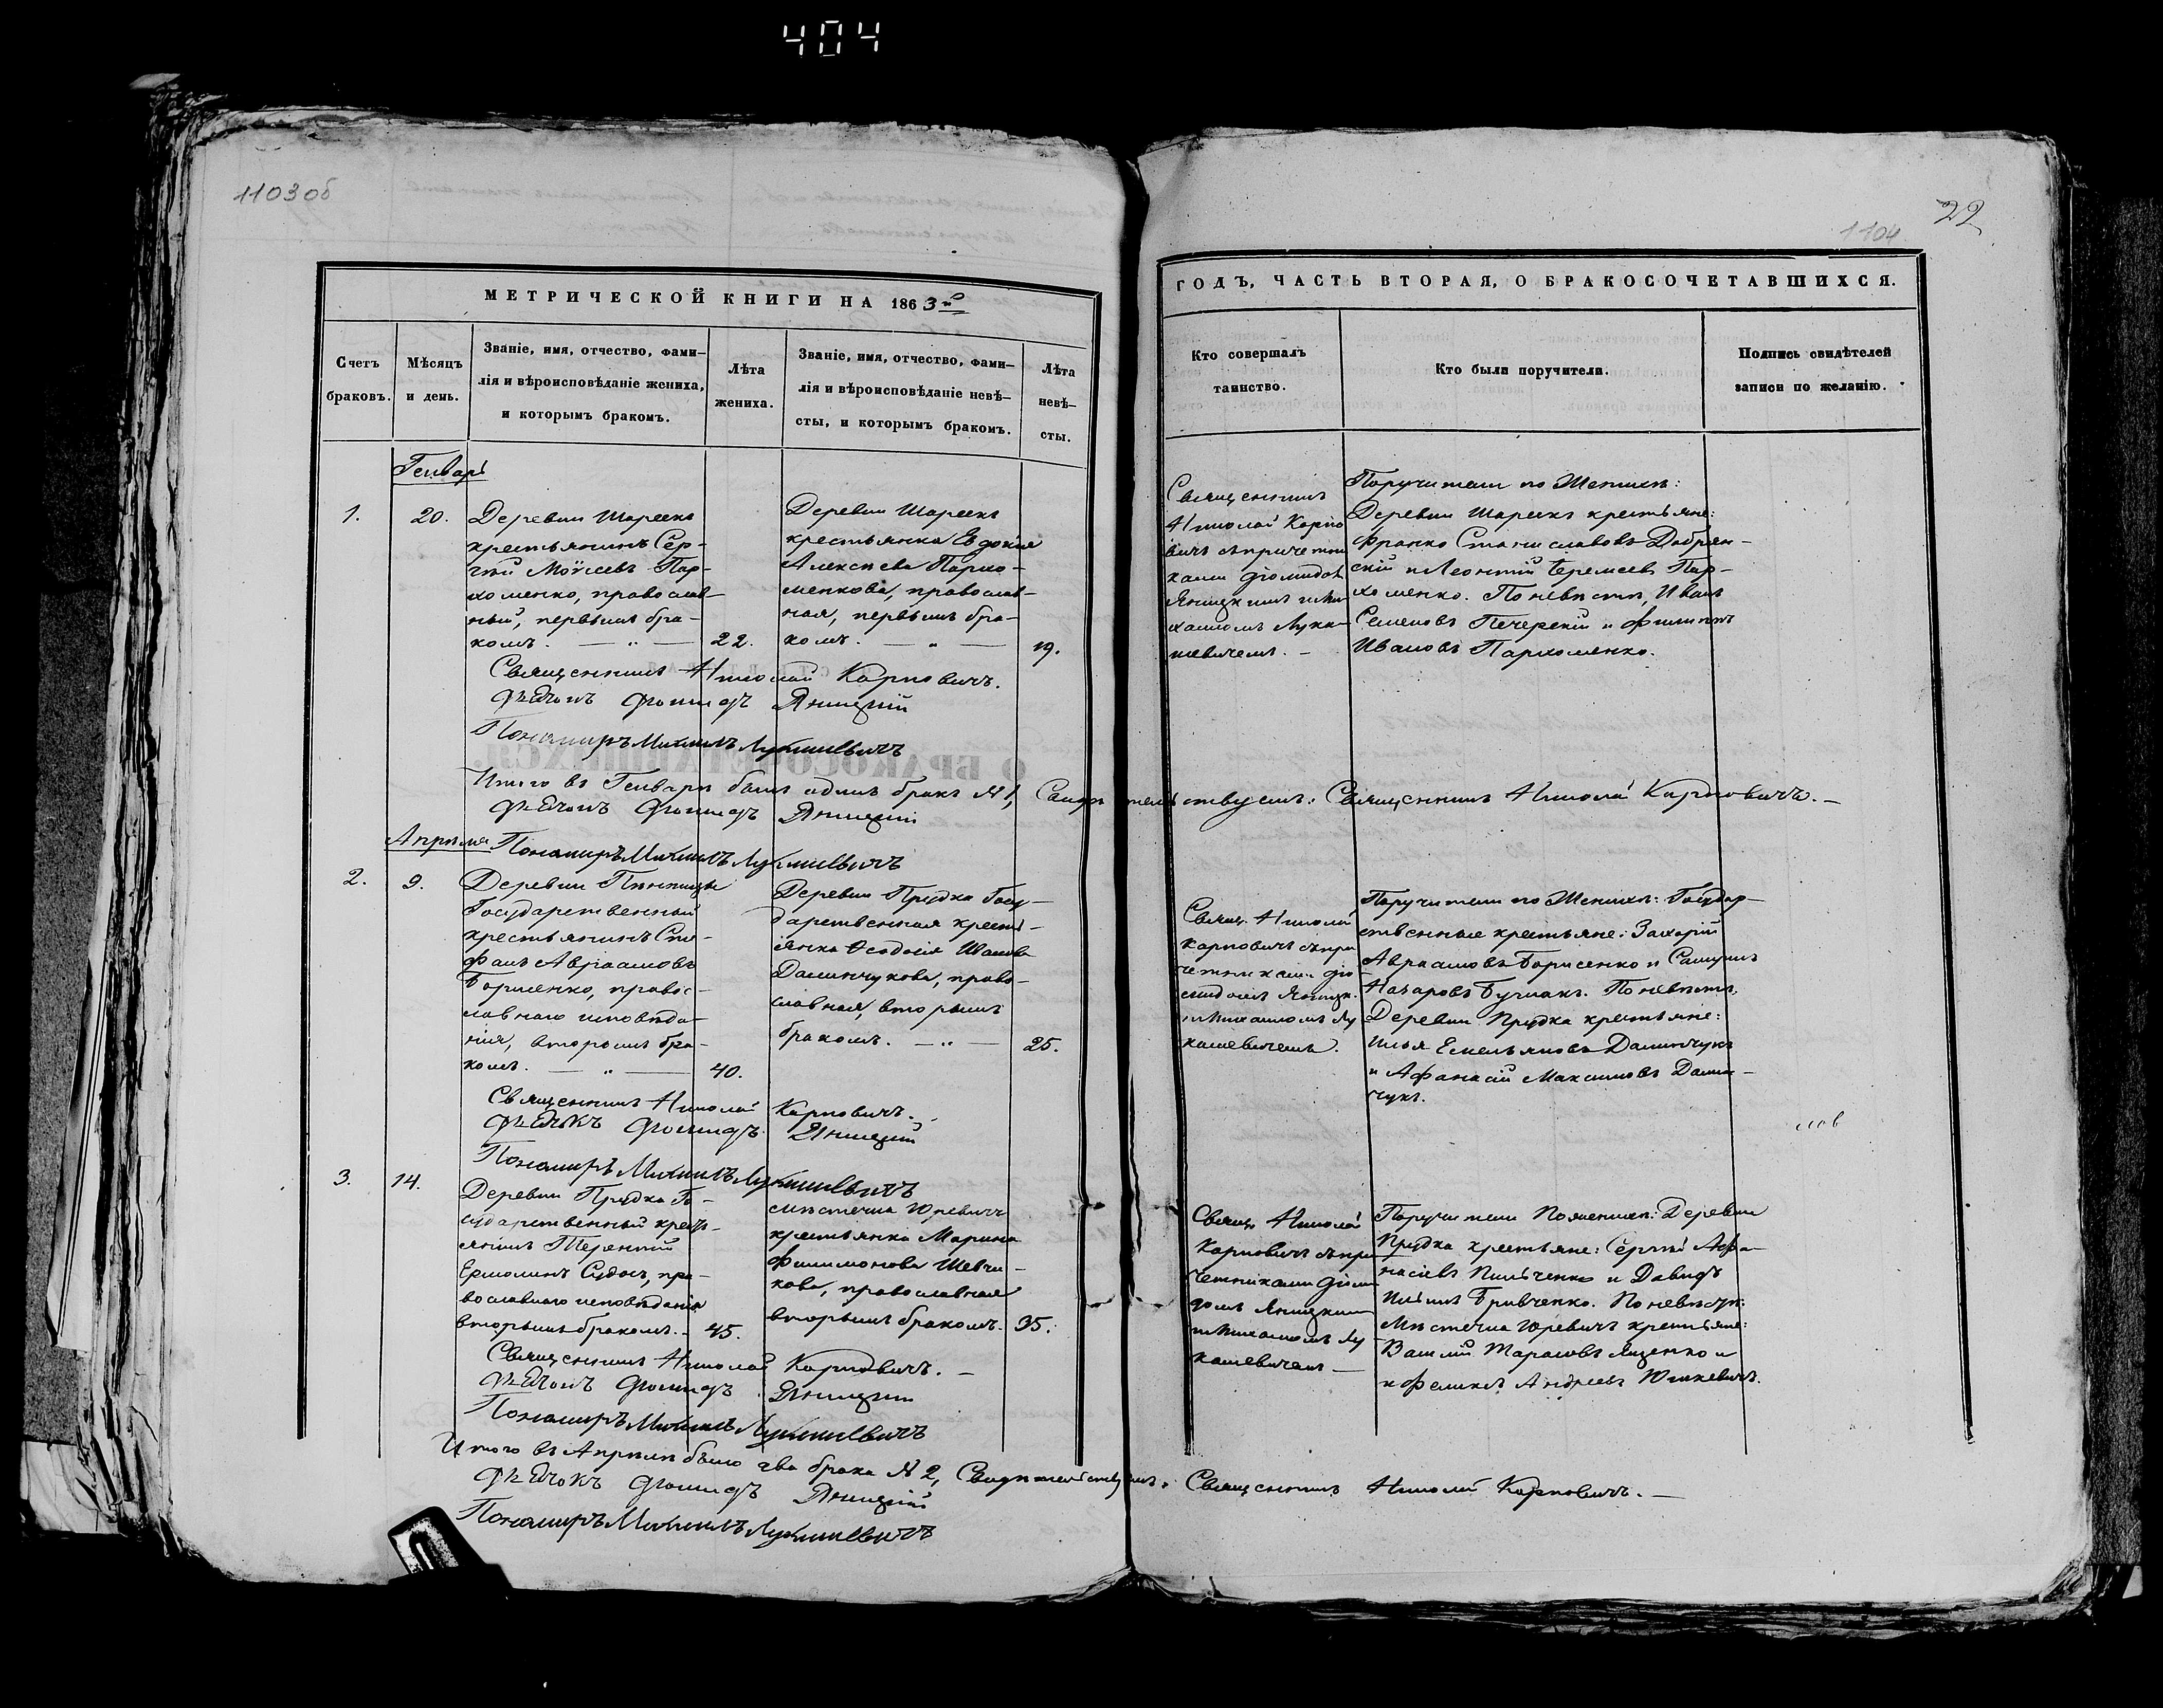 404
1103об
22
1104
МЕТРИЧЕСКОЙ КНИГИ НА 1863й
ГОДЪ, ЧАСТЬ ВТОРАЯ, О БРАКОСОЧЕТАВШИХСЯ.
Счетъ
браковъ.
Мѣсяцъ
и день.
Званіе, имя, отчество, фами-
лія и вѣроисповѣданіе жениха,
и которымъ бракомъ.
Лѣта
жениха.
Званіе, имя, отчество, фами-
лія и вѣроисповѣданіе невѣ-
сты, и которымъ бракомъ.
Лѣта
невѣ-
сты.
Кто совершалъ
таинство.
Кто были поручители.
Подпись свидѣтелей
записи по желанію.
Генварь
1.
20.
Деревни Шареекъ
крестьянинъ Сер-
гій Моѵсеевъ Пар-
хоменко, православ-
ный, первымъ бра-
комъ. — „ —
22.
Деревни Шареекъ
крестьянка Евдокія
Алексѣева Пархо-
менкова, православ-
ная, первымъ бра-
комъ. — „ —
19.
Священникъ
Николай Карпо
вичъ съ причетни
ками Діомидомъ
Яницкимъ и Ми
хаиломъ Лука-
шевичемъ. –
Поручители по Женихѣ:
Деревни Шареекъ крестьяне:
Франко Станиславовъ Добрян-
скій и Леонтій Еремеевъ Пар-
хоменко. По невѣстѣ, Иванъ
Семеновъ Печерскій и Филиппъ
Ивановъ Пархоменко.
Священникъ Николай Карповичъ.
Дьячокъ Діомидъ Яницкій
Пономаръ Михаилъ Лукашевичъ
Итого въ Генварѣ былъ одинъ бракъ № 1, Свидѣтельствуемъ: Священникъ Николай Карповичъ. –
Дьячокъ Діомидъ Яницкій
Пономаръ Михаилъ Лукашевичъ
Апрѣля
2.
9.
Деревни
Государственный
крестьянинъ Сте-
фанъ Авраамовъ
Борисенко, правос-
лавнаго исповѣда-
нія, вторымъ бра-
комъ. — „ —
40.
Деревни Прудка Госу-
дарственная кресть-
янка Ѳеодосія Иванова
Даминчукова, право-
славная, вторымъ
бракомъ. — „ —
25.
Свящ. Николай
Карповичъ съ при
четниками Діо-
мидомъ Яницк.
и Михаиломъ Лу
кашевичемъ.
Поручители по Женихѣ: Государ-
ственные крестьяне: Захарій
Авраамовъ Борисенко и Самуилъ
Назаровъ. По невѣстѣ,
Деревни Прудка крестьяне:
Илья Емельяновъ Даминчукъ
и Афанасій Максимовъ Дамин-
чукъ.
Священникъ Николай Карповичъ.
Дьячокъ Діомидъ Яницкій
Пономаръ Михаилъ Лукашевичъ
3.
14.
Деревни Прудка Го-
сударственный кресть-
янинъ Терентій
Ермолинъ, пра-
вославнаго исповѣданія
вторымъ бракомъ. –
45.
Мѣстечка Юревичъ
крестьянка Марина
Филимонова Шевчи-
кова, православная
вторымъ бракомъ.
35.
Свящ. Николай
Карповичъ съ при
четниками Діоми
домъ Яницкимъ
и Михаиломъ Лу
кашевичемъ –
Поручители По женихѣ: Деревни
Прудка крестьяне: Сергѣй Афа-
насіевъ и Давидъ
Ильинъ. По невѣстѣ:
Мѣстечка Юревичъ крестьяне:
Василій Тарасовъ Яценко и
и Феликсъ Андреевъ Юшкевичъ.
Священникъ Николай Карповичъ. –
Дьячокъ Діомидъ Яницкій
Пономаръ Михаилъ Лукашевичъ
Итого въ Апрѣлѣ было два брака № 2, Свидѣтельствуемъ: Священникъ Николай Карповичъ. –
Дьячокъ Діомидъ Яницкій
Пономаръ Михаилъ Лукашевичъ